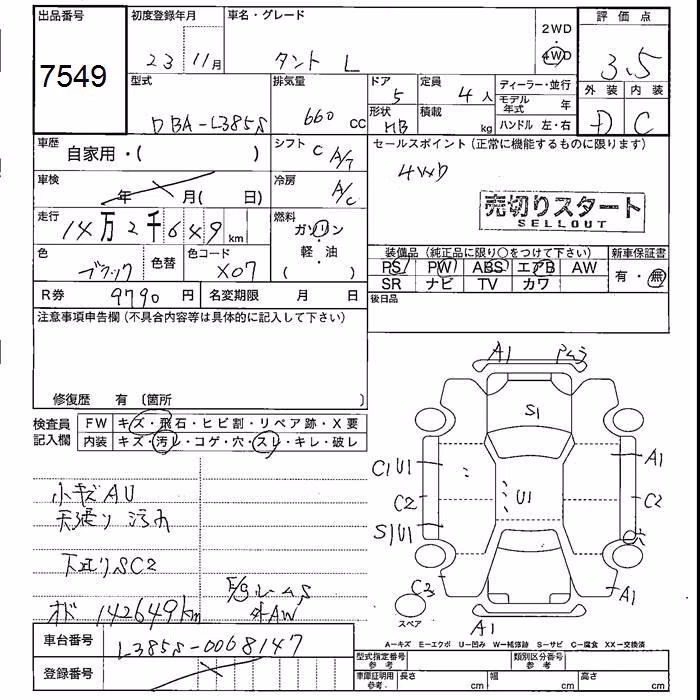 出品番号 初度登録年月 車名・グレード 2WD 評価点
7549 23 11月 タント L 4WD 3.5
型式 排気量 ドア 定員 ディーラー・並行 外装 内装
DBA-L385S 660 CC 5 4人 モデル年式 年 D C
形状 HB 積載 kg ハンドル 左・右
車歴 自家用・( ) シフト C A/T セールスポイント(正常に機能するものに限ります)
4WD
車検 年 月( 日) 冷房 A/C
売切りスタート
SELLOUT
走行 14万2千649km 燃料 ガソリン
軽・油
・( )
装備品(純正品に限り○をつけて下さい) 新車保証書
色 ブラック 色替 色コード X07
PS PW ABS エアB AW 有・無
SR ナビ TV カワ
R券 9790円 名変期限 月 日 後日品
注意事項申告欄(不具合内容等は具体的に記入して下さい)
修復歴 有(箇所 )
検査員記入欄 FW キズ・飛石・ヒビ割・リペア跡・X要
内装 キズ・汚レ・コゲ・穴・スレ・キレ・破レ
A1
S1
A1
C1 U1
C2 U1 C2
S1 U1
穴
C3 A1
スペア
A1
小キズAU
天張り 汚れ
下廻りSC2
外AW
オド 142649km
A=キズ E=エクボ U=凹み W=補修跡 S=サビ C=腐食 XX=交換済
車台番号 L385S-0068147
登録番号
型式指定番号 参考 類別区分番号 参考
車庫証明用 参考 長さ cm 幅 cm 高さ cm